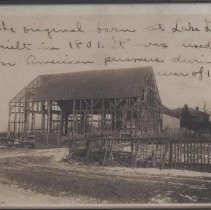 the original barn at Lake
built in 1801. It was used
for American prisoners during
war of 1